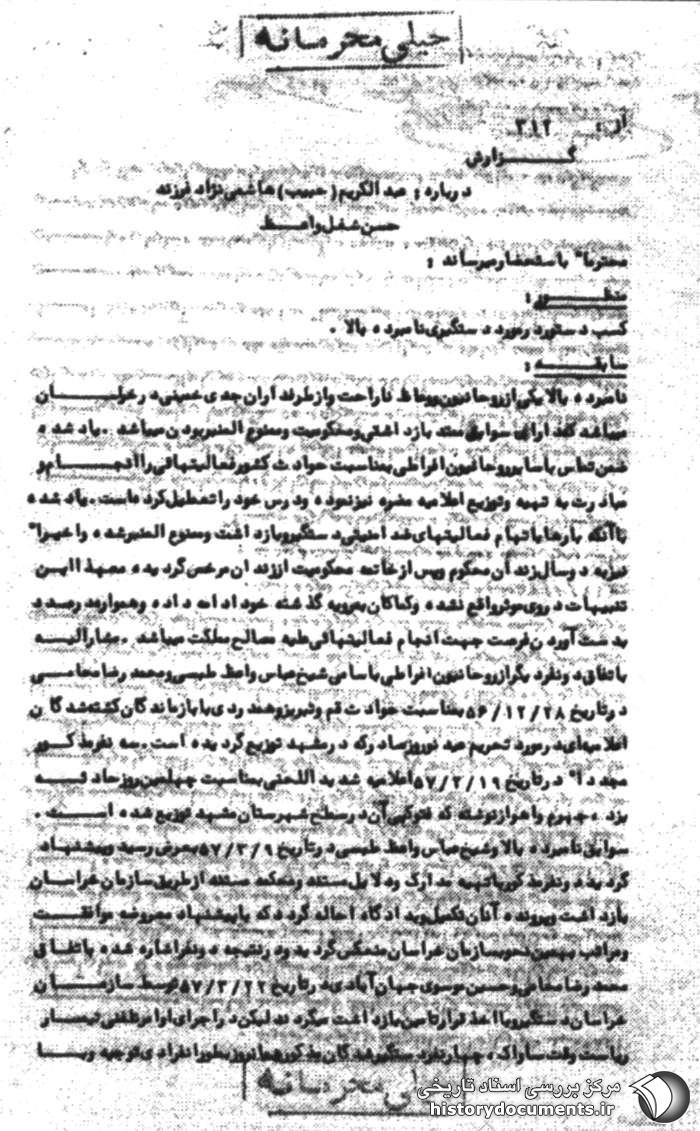 خیلی محرمانه
از : ۳۱۲
گــــــزارش
درباره : عبدالکریم (حبیب) هاشمی نژاد فرزند
حسن شغل واعـــظ
محترما" باستحضار میرساند :
منظــــــور :
کسب دستور در مورد دستگیری نامبرده بالا .
سابقــــــه :
نامبرده بالا یکی از روحانیون و وعاظ ناراحت و از طرفداران جدی خمینی در خراســـان
میباشد که دارای سوابق متعدد بازداشتی و محکومیت و ممنوع المنبر بودن میباشد . یاد شده
ضمن تماس با سایر روحانیون افراطی بمناسبت حوادث کشور فعالیتهائی را انجـــام و
مبادرت به تهیه و توزیع اعلامیه مضره نیز نموده و درس خود را تعطیل کرده است . یاد شده
با آنکه بارها باتهام فعالیتهای ضد امنیتی دستگیر و بازداشت و ممنوع المنبر شده و اخیرا"
نیز به دو سال زندان محکوم و پس از خاتمه محکومیت از زندان مرخص گردیده معهذا ایـن
تنبیهات در وی موثر واقع نشده و کماکان برویه گذشته خود ادامه داده و همواره در صدد
بدست آوردن فرصت جهت انجام فعالیتهائی علیه مصالح مملکت میباشد . مشارالیـــه
باتفاق دو نفر دیگر از روحانیون افراطی باسامی شیخ عباس واعظ طبسی و محمد رضا محامـــی
در تاریخ ۵۶/۱۲/۲۸ بمناسبت حوادث قم و تبریز و همدردی با بازماندگان کشته شدگان
اعلامیه‌ای در مورد تحریم عید نوروز صادر که در مشهد توزیع گردیده است . سه نفر مذکـــور
مجددا" در تاریخ ۵۷/۲/۱۹ اعلامیه شدیداللحنی بمناسبت چهلمین روز حادثـــه
یزد ، جهرم و اهواز نوشته که فتوکپی آن در سطح شهرستان مشهد توزیع شده اســـت .
سوابق نامبرده بالا و شیخ عباس واعظ طبسی در تاریخ ۵۷/۳/۹ بعرض رسید و پیشنهاد
گردید دو نفر مذکور با تهیه مدارک و دلایل مستند و محکمه پسند از طریق سازمان خراسان
بازداشت و پرونده آنان تکمیل و بدادگاه احاله گردد که با پیشنهاد معروضه موافقـــت
و مراتب بهمین نحو بسازمان خراسان منعکس گردید و در نتیجه دو نفر اشاره شده باتفـــاق
محمد رضا محامی و حسین موسوی جهان آبادی در تاریخ ۵۷/۳/۲۲ توسط سازمـــان
خراسان دستگیر و با اخذ قرار تامین بازداشت میگردند لیکن در اجرای اوامر تلفنی تیمسار
ریاست وقت ساواک ، چهار نفر دستگیر شدگان مذکور همانروز بطور انفرادی توجیه و بـــا
خیلی محرمانه
مرکز بررسی اسناد تاریخی
historydocuments.ir